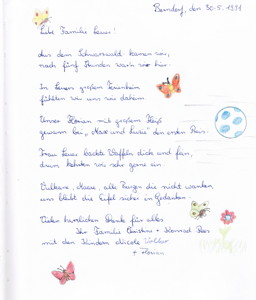 Berndorf, den 30.5.1991
Liebe Familie Leuer!
Aus dem Schwarzwald kamen wir,
nach fünf Stunden war'n wir hier.
In Leuers großem Ferienheim
fühlten wir uns wie daheim.
Unser Florian mit großem Fleiß
gewann bei „Maxe und Luzie" den ersten Preis.
Frau Leuer backte Waffeln dick und fein,
drum kehrten wir sehr gerne ein.
Vulkane, Maare, alle Burgen die nicht wanken,
uns bleibt die Eifel sicher in Gedanken.
Vielen herzlichen Dank für alles
Ihr Familie Christine + Konrad
mit den Kindern
+ Florian